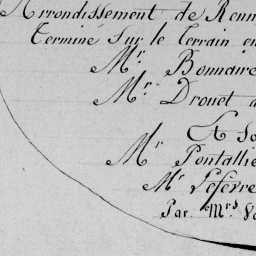 Arrondissement de Renn
Terminé Sur le Terrain en
Mr. Bonnaire
Mr. Drouet a
Et So
Mr Pontallié
Mr Lefévre
Par Mrs